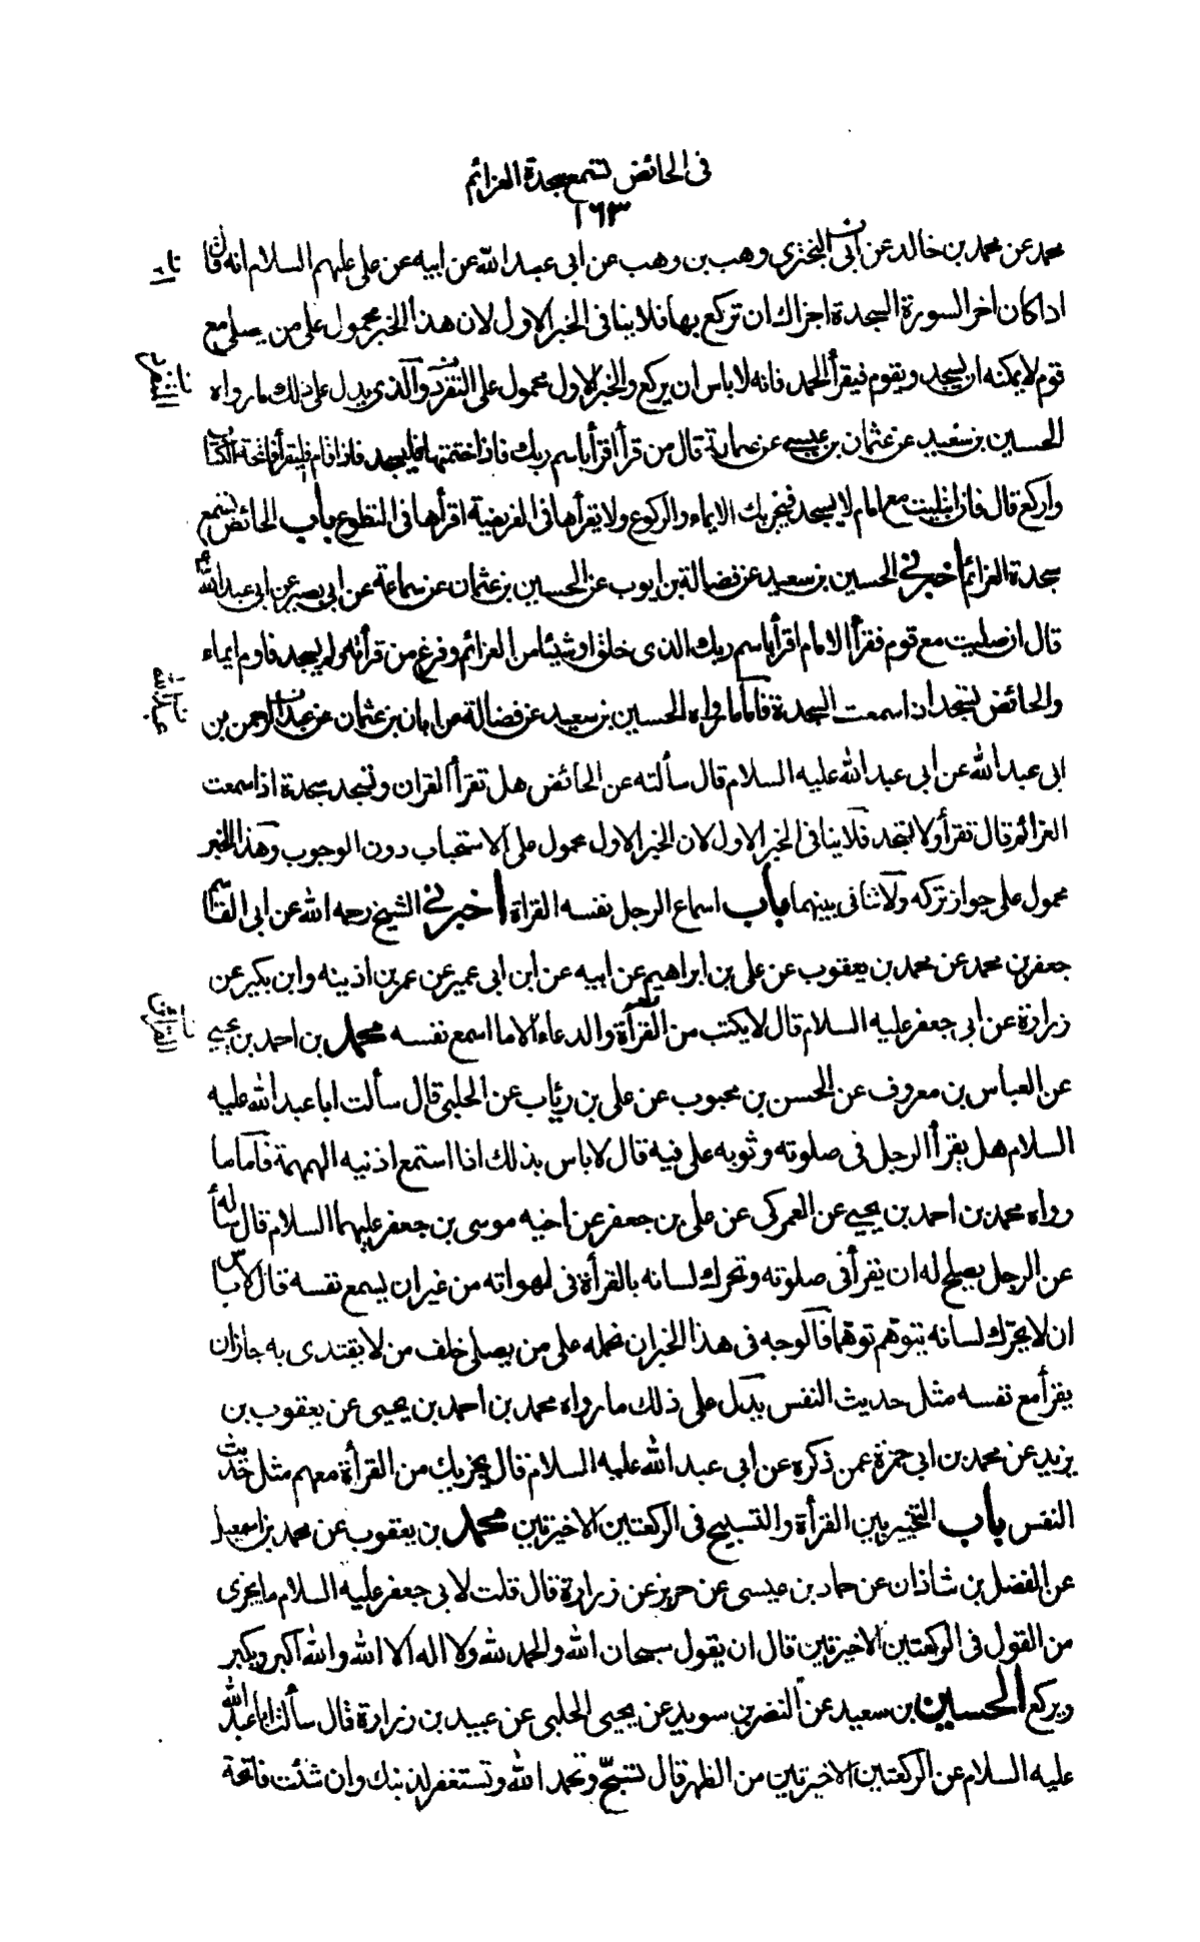 فى الحائض تستمع سجدة العزائم
١٦٣
محمد عن محمد بن خالد عن ابى البخترى وهب بن وهب عن ابى عبد الله عن ابيه عن على عليهم السلام انه قال
اذا كان اخر السورة السجدة اجزاك ان تركع بها فلا ينافى الخبر الاول لان هذا الخبر محمول على من يصلى مع
قوم لا يمكنه ان يسجد ويقوم فيقرأ الحمد فانه لا باس ان يركع والخبر الاول محمول على التفرد والذى يدل على ذلك ما رواه
الحسين بن سعيد عن عثمان بن عيسى عن سماعة قال من قرأ اقرأ باسم ربك فاذا ختمتها فليسجد فاذا قام فليقرأ فاتحة الكتاب
واركع قال فان ابتليت مع امام لا يسجد فيجزيك الايماء والركوع ولا يقرأها فى الفريضة اقرأها فى التطوع باب الحائض تستمع
سجدة العزائم اخبرنى الحسين بن سعيد عن فضالة بن ايوب عن الحسين بن عثمان عن سماعة عن ابى بصير عن ابى عبد الله
قال ان صليت مع قوم فقرأ الامام اقرأ باسم ربك الذى خلق او شيئا من العزائم وفرغ من قرأته ولم يسجد فاوم ايماء
والحائض تسجد اذا سمعت السجدة فأما ما رواه الحسين بن سعيد عن فضالة عن ابان بن عثمان عن عبد الرحمن بن
ابى عبد الله عن ابى عبد الله عليه السلام قال سألته عن الحائض هل تقرأ القران وتسجد سجدة اذا سمعت
العزائم قال تقرأ ولا تسجد فلا ينافى الخبر الاول لان الخبر الاول محمول على الاستحباب دون الوجوب وهذا الخبر
محمول على جواز تركه ولا تنافى بينهما باب اسماع الرجل نفسه القراة اخبرنى الشيخ رحمه الله عن ابى القاسم
جعفر بن محمد عن محمد بن يعقوب عن على بن ابراهيم عن ابيه عن ابن ابى عمير عن عمر بن اذينه وابن بكير عن
زرارة عن ابى جعفر عليه السلام قال لا يكتب من القرأة والدعاء الا ما اسمع نفسه محمد بن احمد بن يحيى
عن العباس بن معروف عن الحسن بن محبوب عن على بن رئاب عن الحلبى قال سألت ابا عبد الله عليه
السلام هل يقرأ الرجل فى صلوته وثوبه على فيه قال لا باس بذلك اذا استمع اذنيه الهمهمة فأما ما
رواه محمد بن احمد بن يحيى عن العمركى عن على بن جعفر عن اخيه موسى بن جعفر عليهما السلام قال سألته
عن الرجل يصلح له ان يقرأ فى صلوته وتحرك لسانه بالقرأة فى لهواته من غير ان يسمع نفسه قال لا باس
ان لا يحرّك لسانه يتوهّم توهما فالوجه فى هذا الخبر ان نحمله على من يصلى خلف من لا يقتدى به جاز ان
يقرأ مع نفسه مثل حديث النفس يدل على ذلك ما رواه محمد بن احمد بن يحيى عن يعقوب بن
يزيد عن محمد بن ابى حمزة عمن ذكره عن ابى عبد الله عليه السلام قال يجزيك من القرأة معهم مثل حديث
النفس باب التخيير بين القرأة والتسبيح فى الركعتين الاخيرتين محمد بن يعقوب عن محمد بن اسمعيل
عن الفضل بن شاذان عن حماد بن عيسى عن حريز عن زرارة قال قلت لابى جعفر عليه السلام ما يجزى
من القول فى الركعتين الاخيرتين قال ان يقول سبحان الله والحمد لله ولا اله الا الله والله اكبر ويكبر
ويركع الحسين بن سعيد عن النضر بن سويد عن يحيى الحلبى عن عبيد بن زرارة قال سألت ابا عبد الله
عليه السلام عن الركعتين الاخيرتين من الظهر قال تسبّح وتحمد الله وتستغفر لذنبك وان شئت فاتحة
عبد الله
القرائن